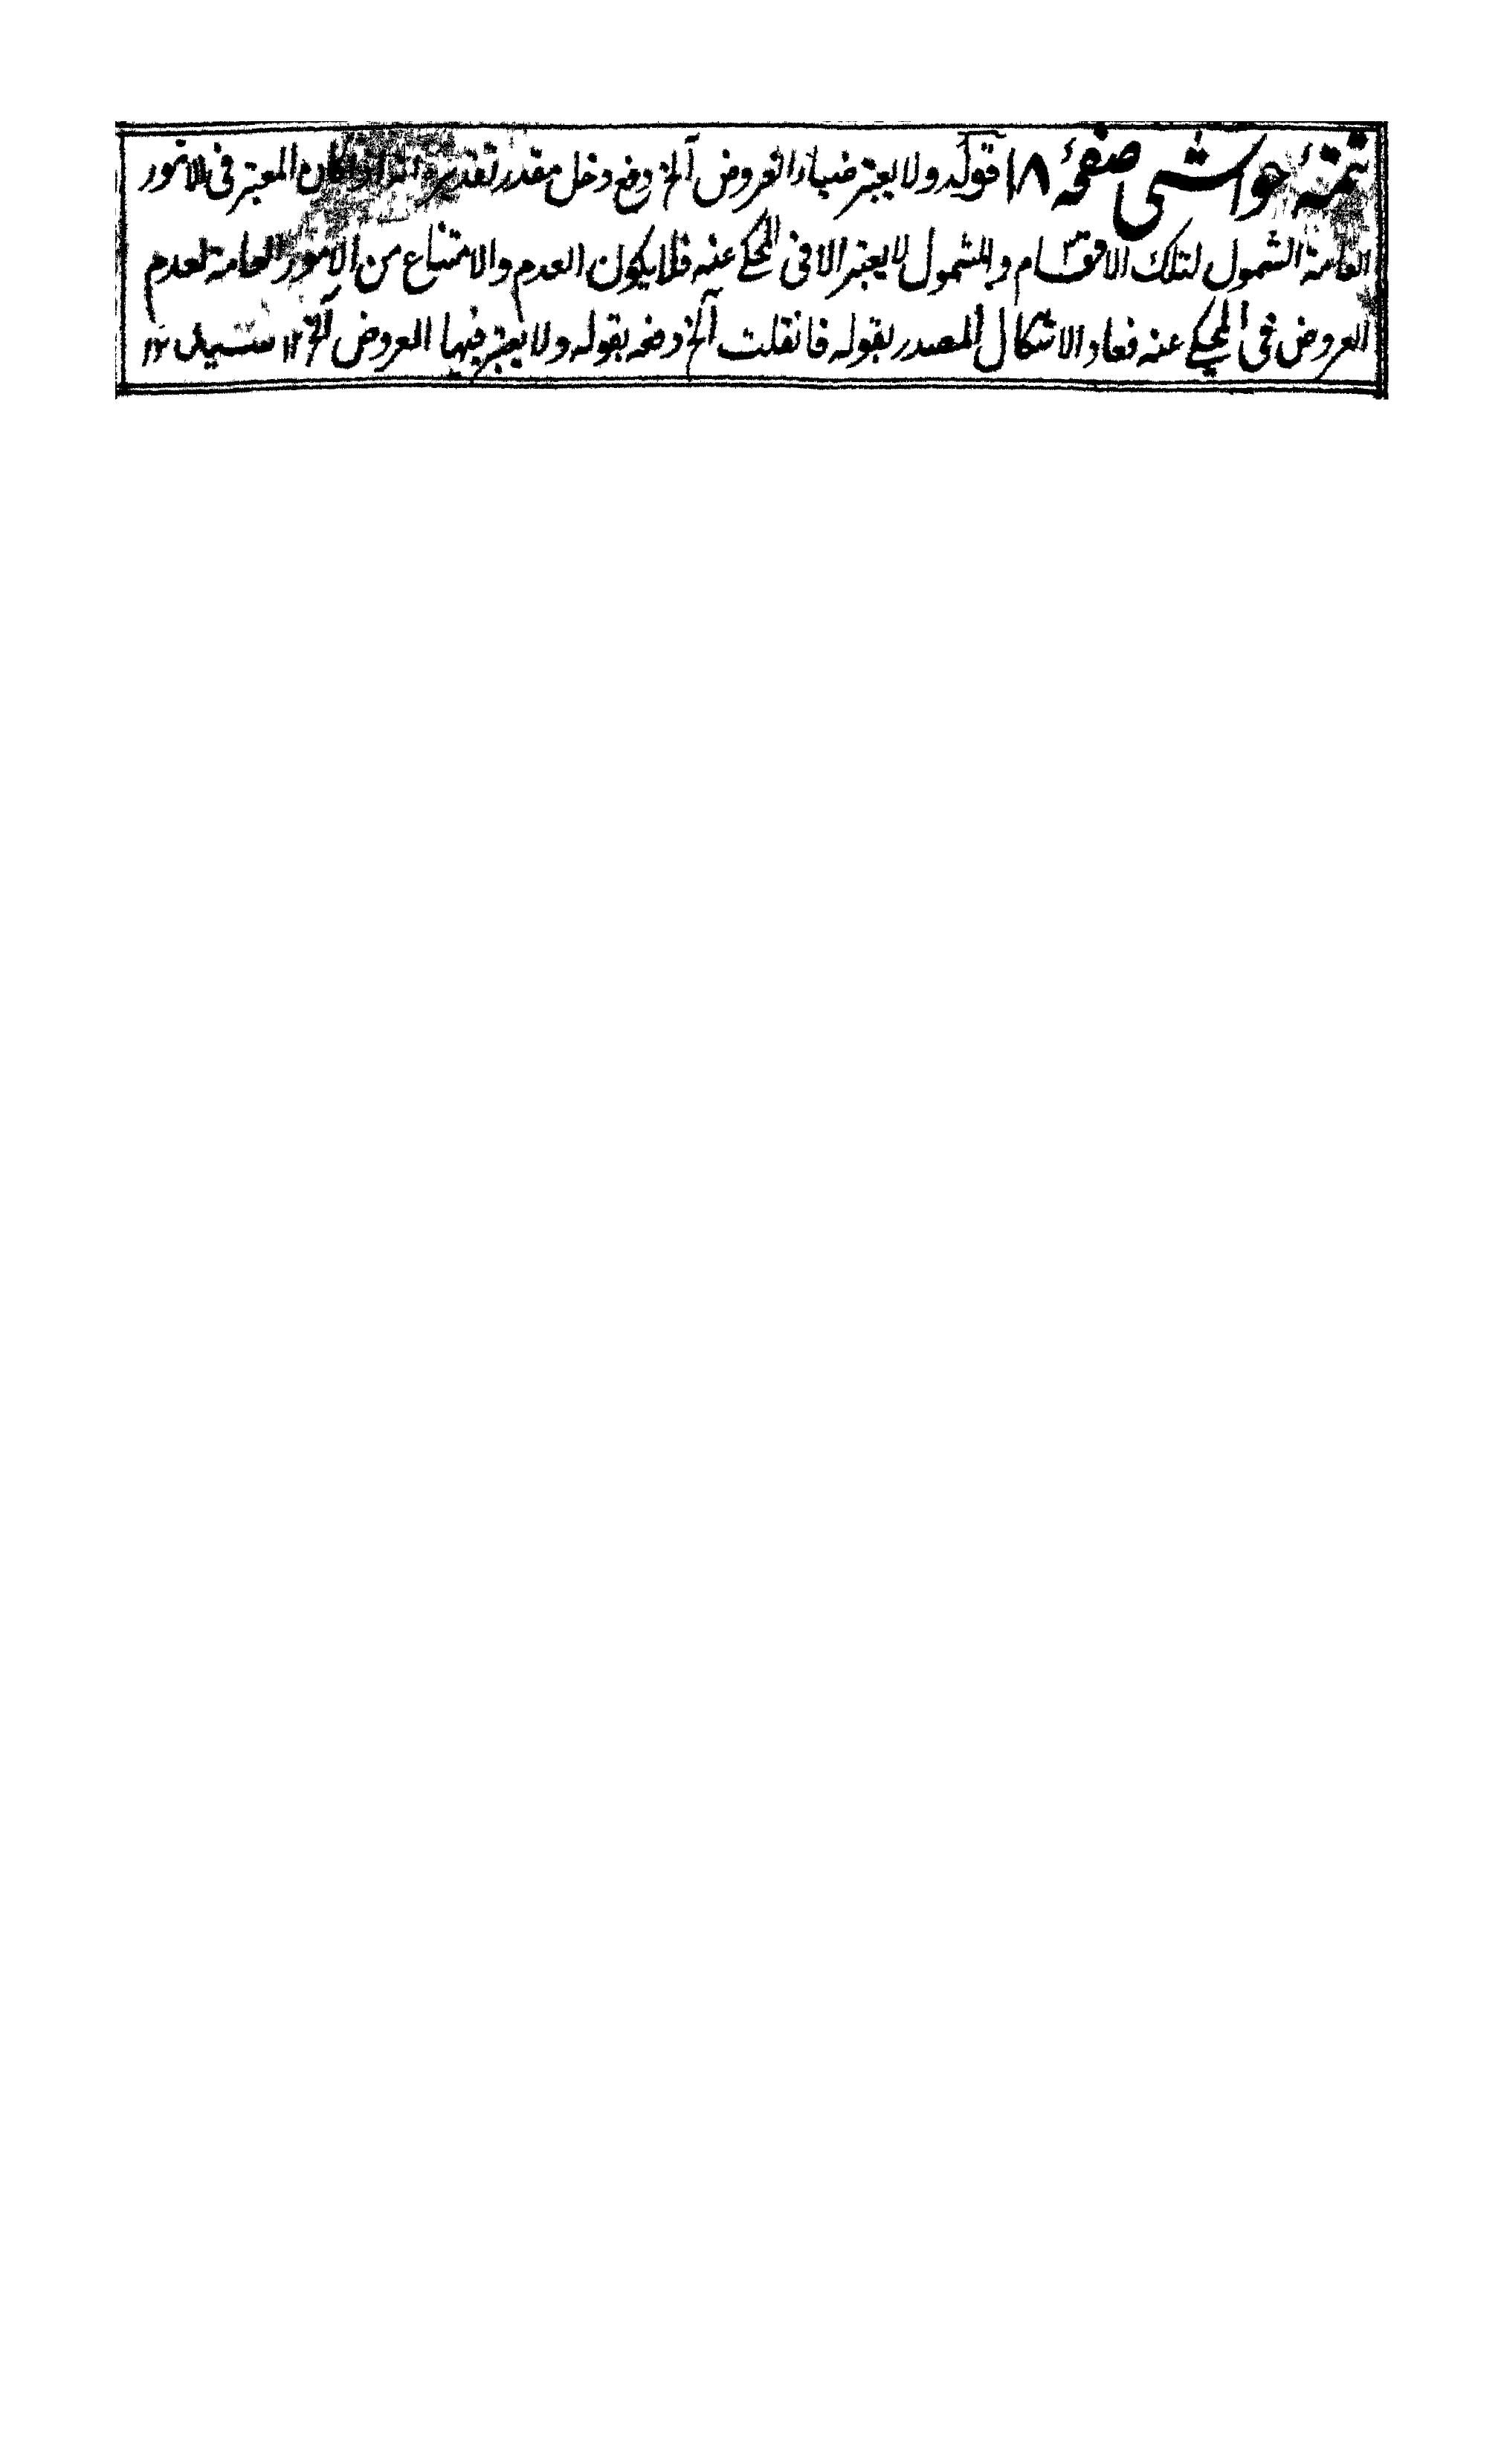 تتمۂ حواشی صفحۂ ١٨ قوله ولا يعتبر فيها العروض آلخ دفع دخل مقدر تقديره انه اذا كان المعتبر فى الامور
العامة الشمول لتلك الاقسام والشمول لا يعتبر الا فى المحكى عنه فلا يكون العدم والامتناع من الامور العامة لعدم
العروض فى المحكى عنه فعاد الاشكال المصدر بقوله فانقلت آلخ دفعه بقوله ولا يعتبر فيها العروض آلخ ١٢